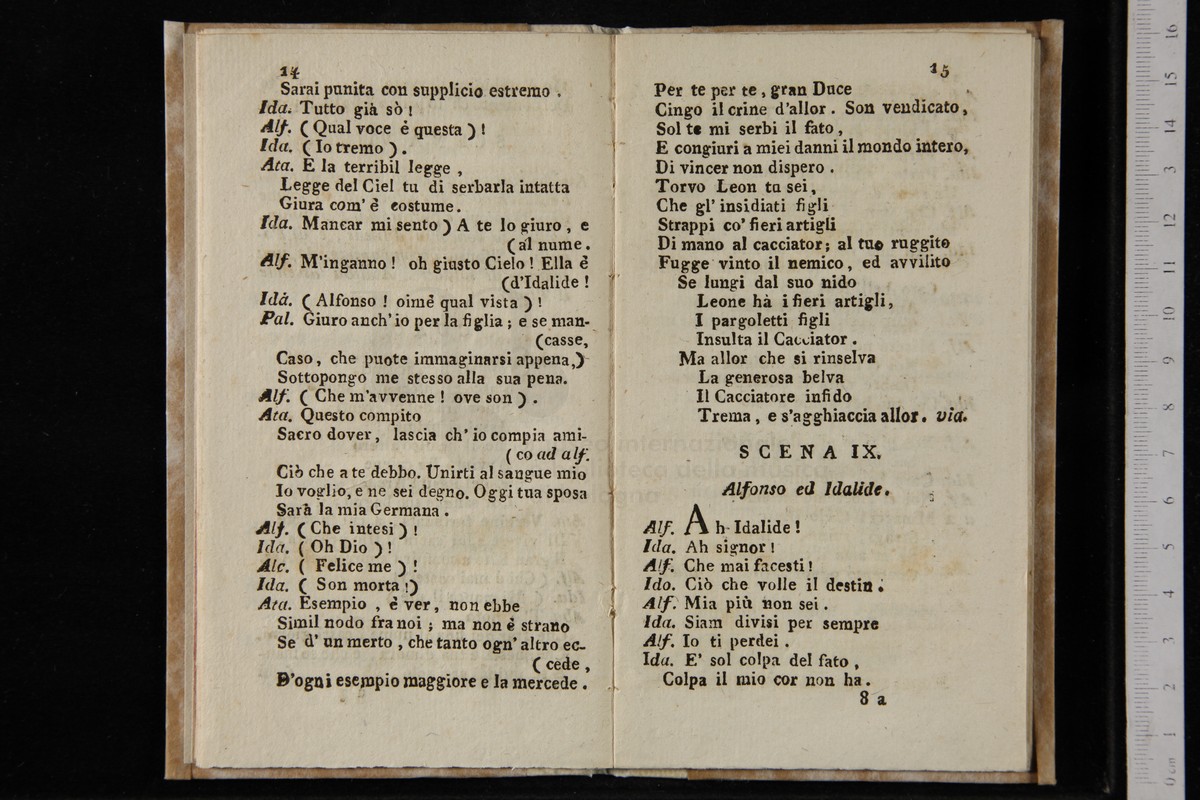 14
Sarai punita con supplicio estremo .
Ida. Tutto già sò !
Alf. ( Qual voce è questa ) !
Ida. ( Io tremo ) .
Ata. E la terribil legge ,
Legge del Ciel tu di serbarla intatta
Giura com' è costume .
Ida. Mancar mi sento ) A te lo giuro , e
( al nume .
Alf. M'inganno ! oh giusto Cielo ! Ella è
(d'Idalide !
Idà. ( Alfonso ! oimè qual vista ) !
Pal. Giuro anch' io per la figlia ; e se man-
(casse,
Caso , che puote immaginarsi appena,)
Sottopongo me stesso alla sua pena.
Alf. ( Che m'avvenne ! ove son ) .
Ata. Questo compito
Sacro dover , lascia ch' io compia ami-
( co ad alf.
Ciò che a te debbo. Unirti al sangue mio
Io voglio, e ne sei degno. Oggi tua sposa
Sarà la mia Germana .
Alf. ( Che intesi ) !
Ida. ( Oh Dio ) !
Alc. ( Felice me ) !
Ida. ( Son morta !)
Ata. Esempio , è ver , non ebbe
Simil nodo fra noi ; ma non è strano
Se d' un merto , che tanto ogn' altro ec-
( cede ,
D'ogni esempio maggiore e la mercede .
15
Per te per te , gran Duce
Cingo il crine d'allor . Son vendicato ,
Sol te mi serbi il fato ,
E congiuri a miei danni il mondo intero,
Di vincer non dispero .
Torvo Leon tu sei ,
Che gl' insidiati figli
Strappi co' fieri artigli
Di mano al cacciator ; al tuo ruggito
Fugge vinto il nemico , ed avvilito
Se lungi dal suo nido
Leone hà i fieri artigli ,
I pargoletti figli
Insulta il Cacciator .
Ma allor che si rinselva
La generosa belva
Il Cacciatore infido
Trema , e s'agghiaccia allor . via.
SCENA IX.
Alfonso ed Idalide.
Alf. Ah Idalide !
Ida. Ah signor !
Alf. Che mai facesti !
Ido. Ciò che volle il destin .
Alf. Mia più non sei .
Ida. Siam divisi per sempre
Alf. Io ti perdei .
Ida. E' sol colpa del fato ,
Colpa il mio cor non ha .
8 a